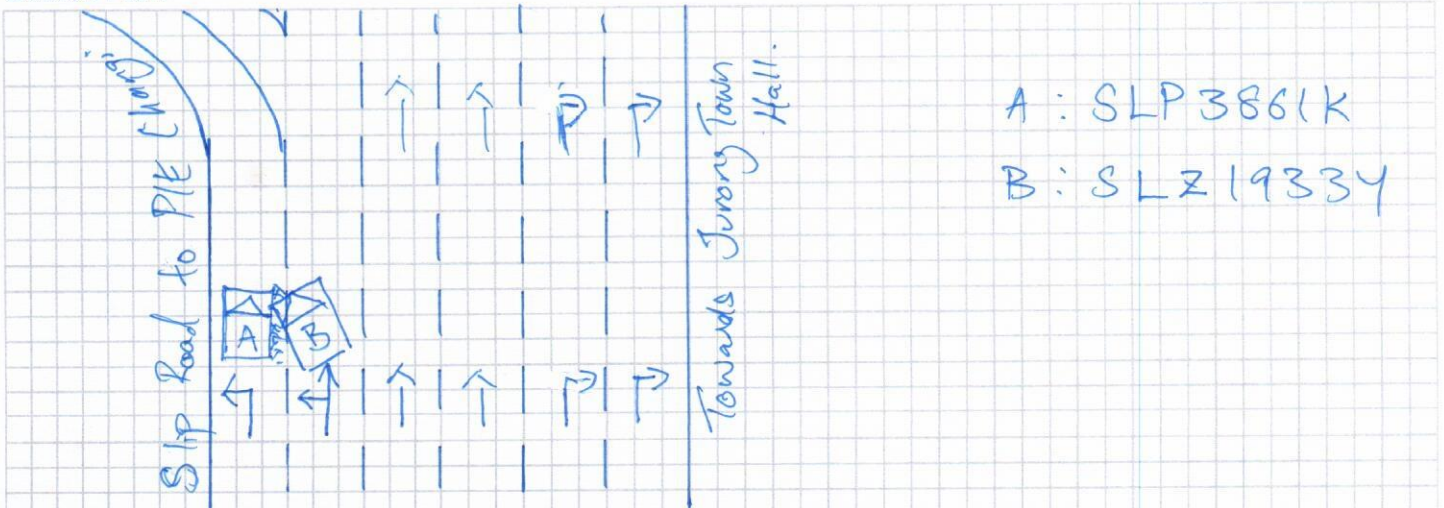 Slip Road to PIE (Changi)
A
B
Towards Jurong Town
Hall.
A : SLP3861K
B : SLZ1933Y